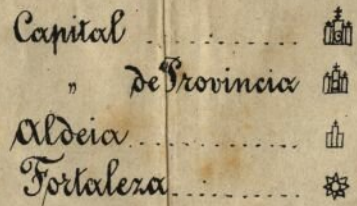 Capital ................
" de Provincia
Aldeia ................
Fortaleza ................